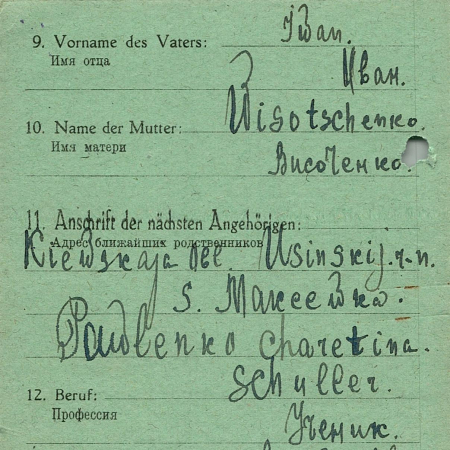 9. Vorname des Vaters: Iван.
Имя отца Иван.
10. Name der Mutter: Wisotschenko.
Имя матери Височенко.
11. Anschrift der nächsten Angehörigen:
Адрес ближайших родственников
Kiewskaja Obl. Usinskij. r-n.
s. Максеевка.
Pawlenko charetina.
12. Beruf: schuller.
Профессия Ученик.